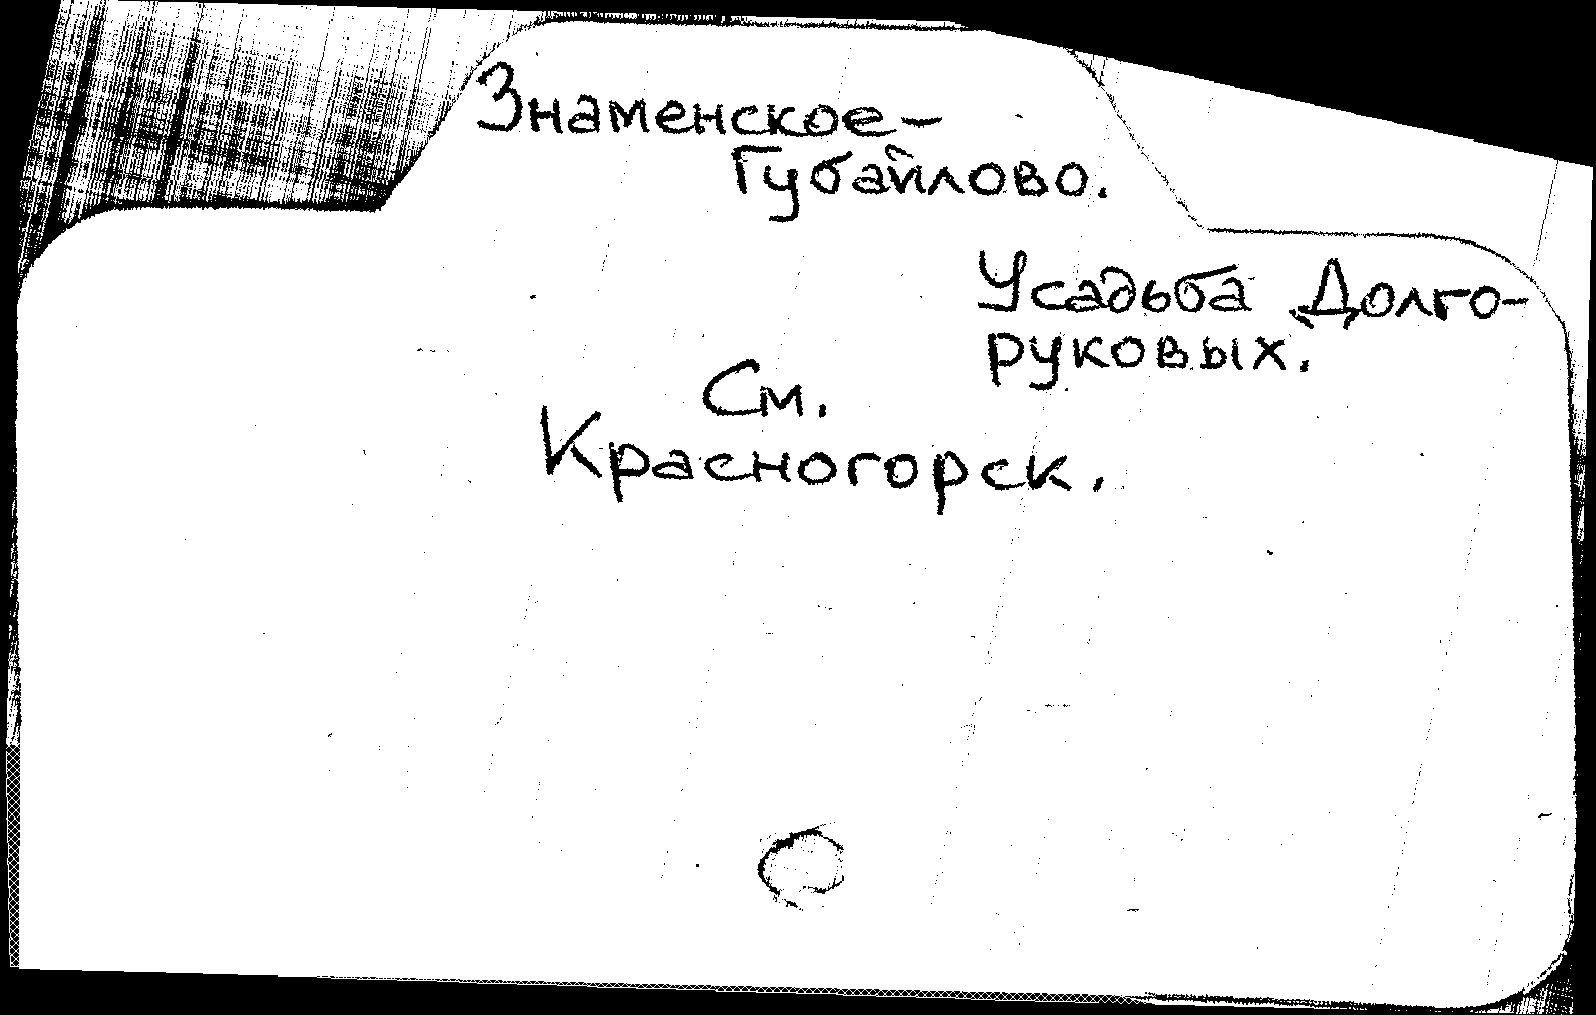 Знаменское-
Губайлово.
Усадьба Долго-
руковых.
См.
Красногорск.